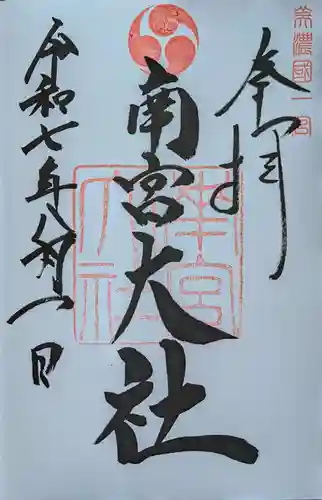 美濃國一宮
奉拝
南宮大社
令和七年八月一日